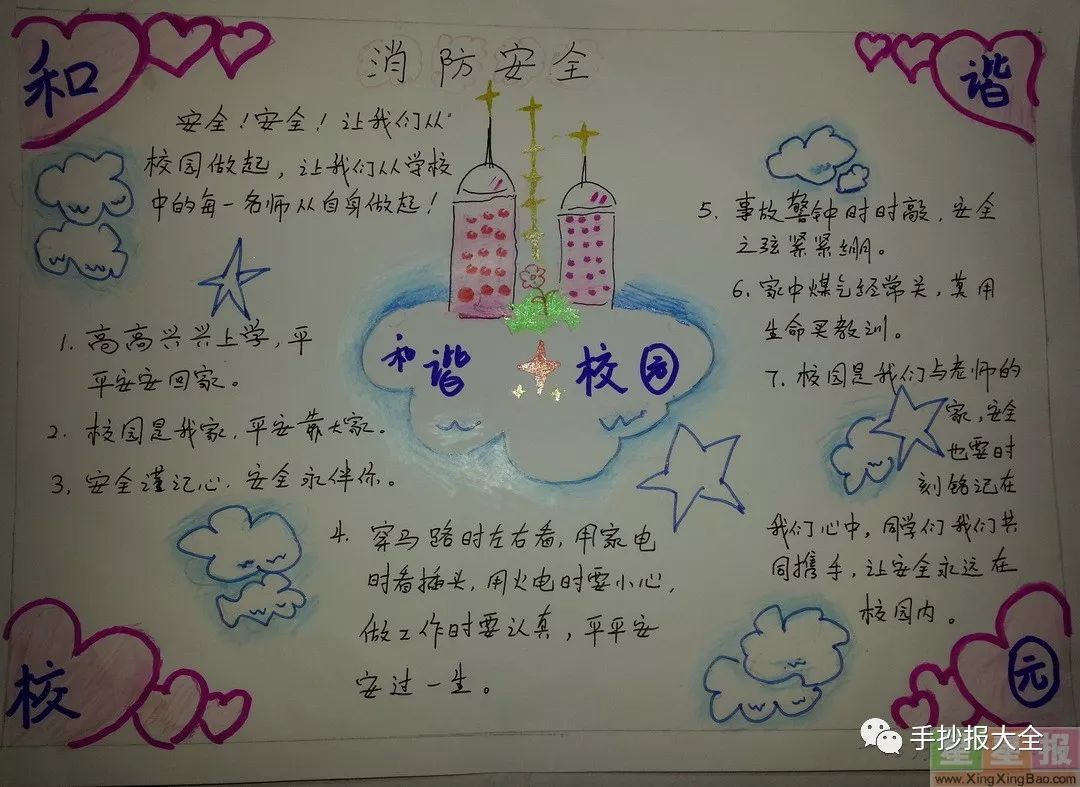 和
谐
消防安全
安全！安全！让我们从
校园做起，让我们从学校
中的每一名师从自身做起！
1. 高高兴兴上学，平
平安安回家。
2. 校园是我家，平安靠大家。
3. 安全谨记心，安全永伴你。
和谐 校园
4. 穿马路时左右看，用家电
时看插头，用火电时要小心，
做工作时要认真，平平安
安过一生。
5. 事故警钟时时敲，安全
之弦紧紧绷。
6. 家中煤气经常关，莫用
生命买教训。
7. 校园是我们与老师的
家，安全
也要时
刻铭记在
我们心中，同学们我们共
同携手，让安全永远在
校园内。
校
园
手抄报大全
星星报
www.XingXingBao.com